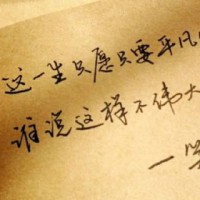 这一生只愿只要平凡
谁说这样不伟大
一笑